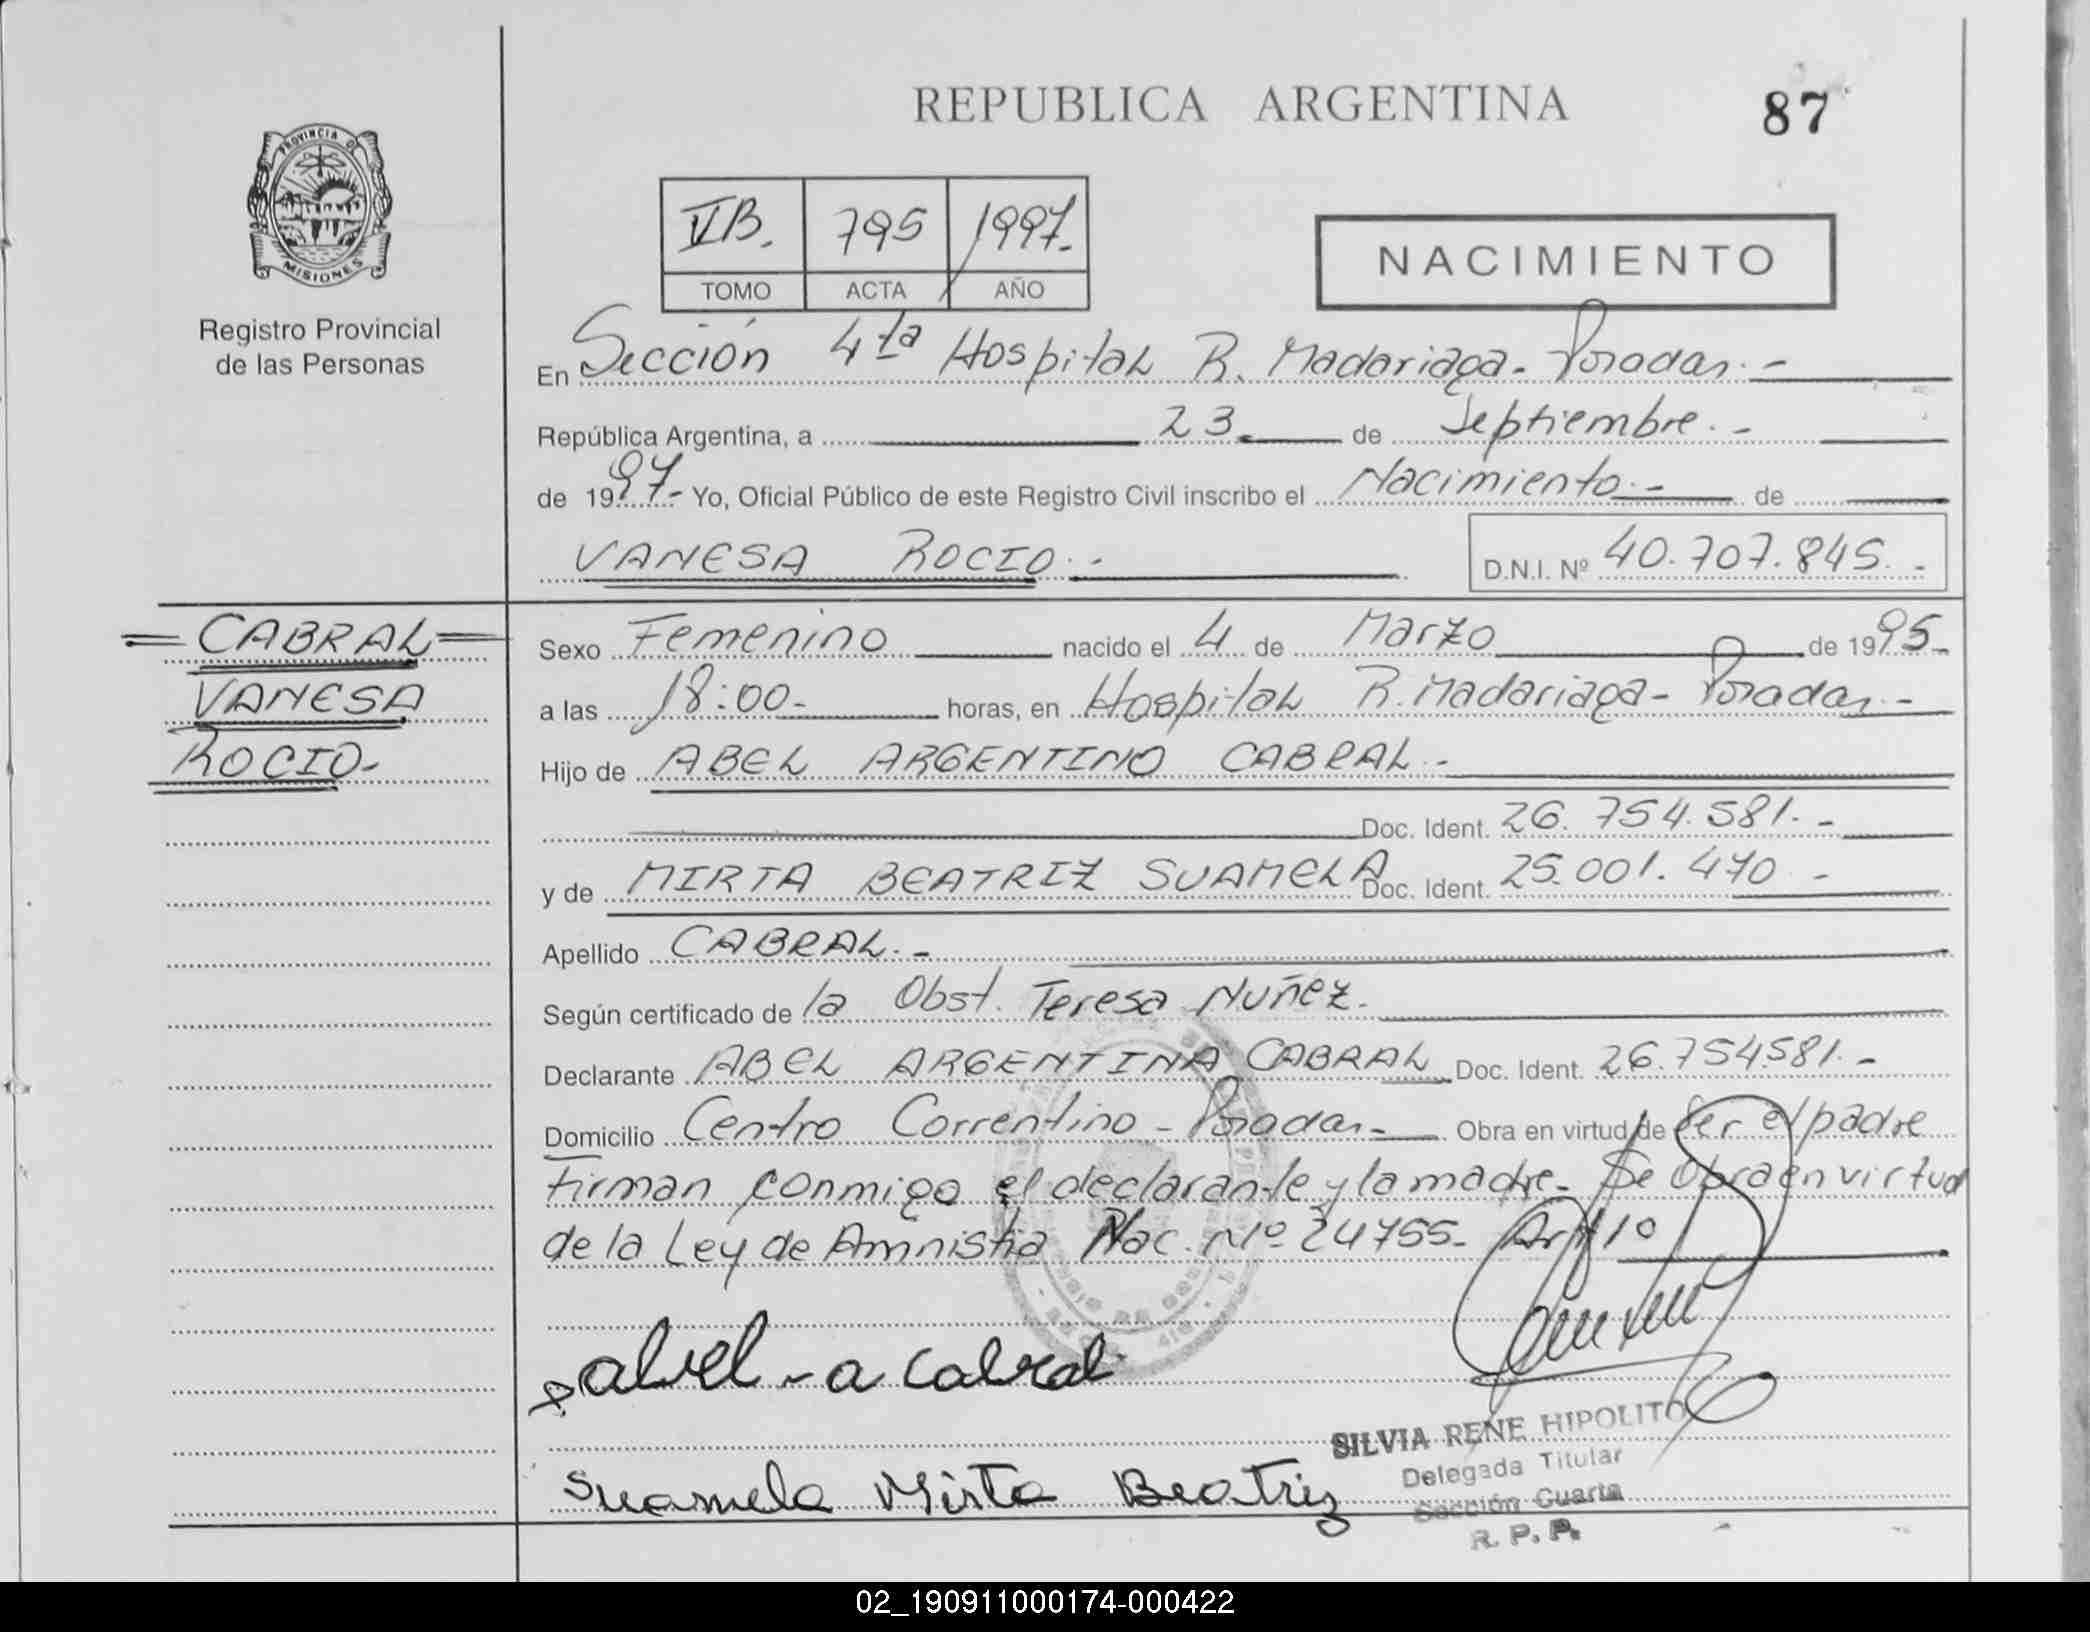 REPUBLICA ARGENTINA
87
PROVINCIA DE MISIONES
Registro Provincial
de las Personas
VB. 795 1997.-
TOMO ACTA AÑO
NACIMIENTO
En Sección 4ta Hospital R. Madariaga - Posadas.-
República Argentina, a 23 de Septiembre.-
de 1997.- Yo, Oficial Público de este Registro Civil inscribo el Nacimiento.- de
VANESA ROCIO.-
D.N.I. Nº 40.707.845.-
=CABRAL=
VANESA
ROCIO-
Sexo Femenino nacido el 4 de Marzo de 1995-
a las 18:00- horas, en Hospital R. Madariaga - Posadas.-
Hijo de ABEL ARGENTINO CABRAL.-
Doc. Ident. 26.754.581.-
y de MIRTA BEATRIZ SUAMELA Doc. Ident. 25.001.470-
Apellido CABRAL.-
Según certificado de la Obst. Teresa Nuñez.
Declarante ABEL ARGENTINA CABRAL Doc. Ident. 26.754.581.-
Domicilio Centro Correntino - Posadas- Obra en virtud de Ser el padre
Firman conmigo el declarante y la madre- Se Obra en virtud
de la Ley de Amnistia Nac. Nº 24755- Art 1º
abel - a cabral
Suamela Mirta Beatriz
SILVIA RENE HIPOLITO
Delegada Titular
Sección Cuarta
R. P. P.
02_190911000174-000422